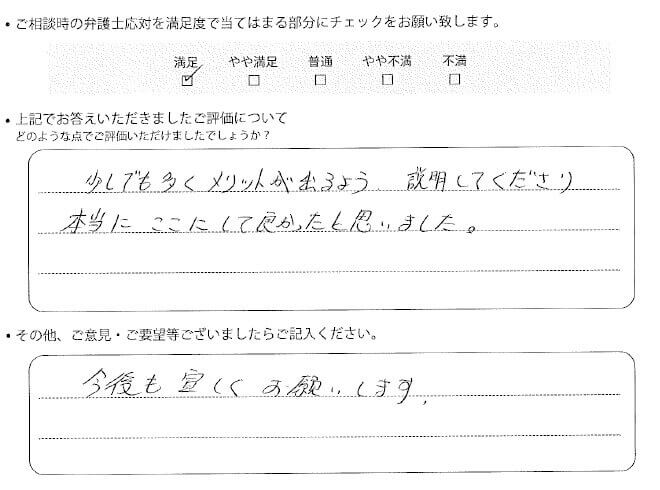 • ご相談時の弁護士応対を満足度で当てはまる部分にチェックをお願い致します。
満足 やや満足 普通 やや不満 不満
☑ ☐ ☐ ☐ ☐
• 上記でお答えいただきましたご評価について
どのような点でご評価いただけましたでしょうか?
少しでも多くメリットが出るよう 説明してくださり
本当に ここにして良かったと思いました。
• その他、ご意見・ご要望等ございましたらご記入ください。
今後も宜しくお願いします。